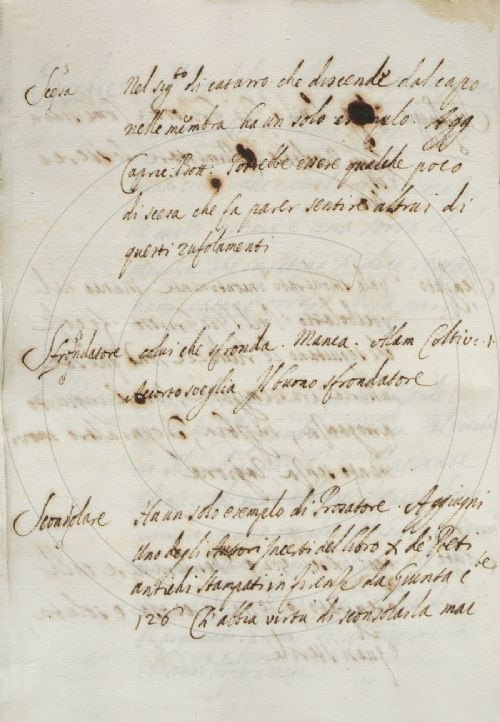 Scesa Nel sig.to di catarro che discende dal capo
nelle membra ha un solo esempio. Agg
Capric. Bott. Potrebbe essere qualche poco
di scesa che fa parer sentire altrui di
questi zufolamenti
Sfrondatore colui che sfronda. Manca. Alam. Coltiv. 1.
Accorto sveglia Il buono sfrondatore
Sconsolare Ha un solo esempio di Prosatore. Aggiugni
uno degli Autori incerti del libro X de' Poeti
antichi stampati in firenze da Giunta c
126 Ch'abbia virtu di sconsolarla mai